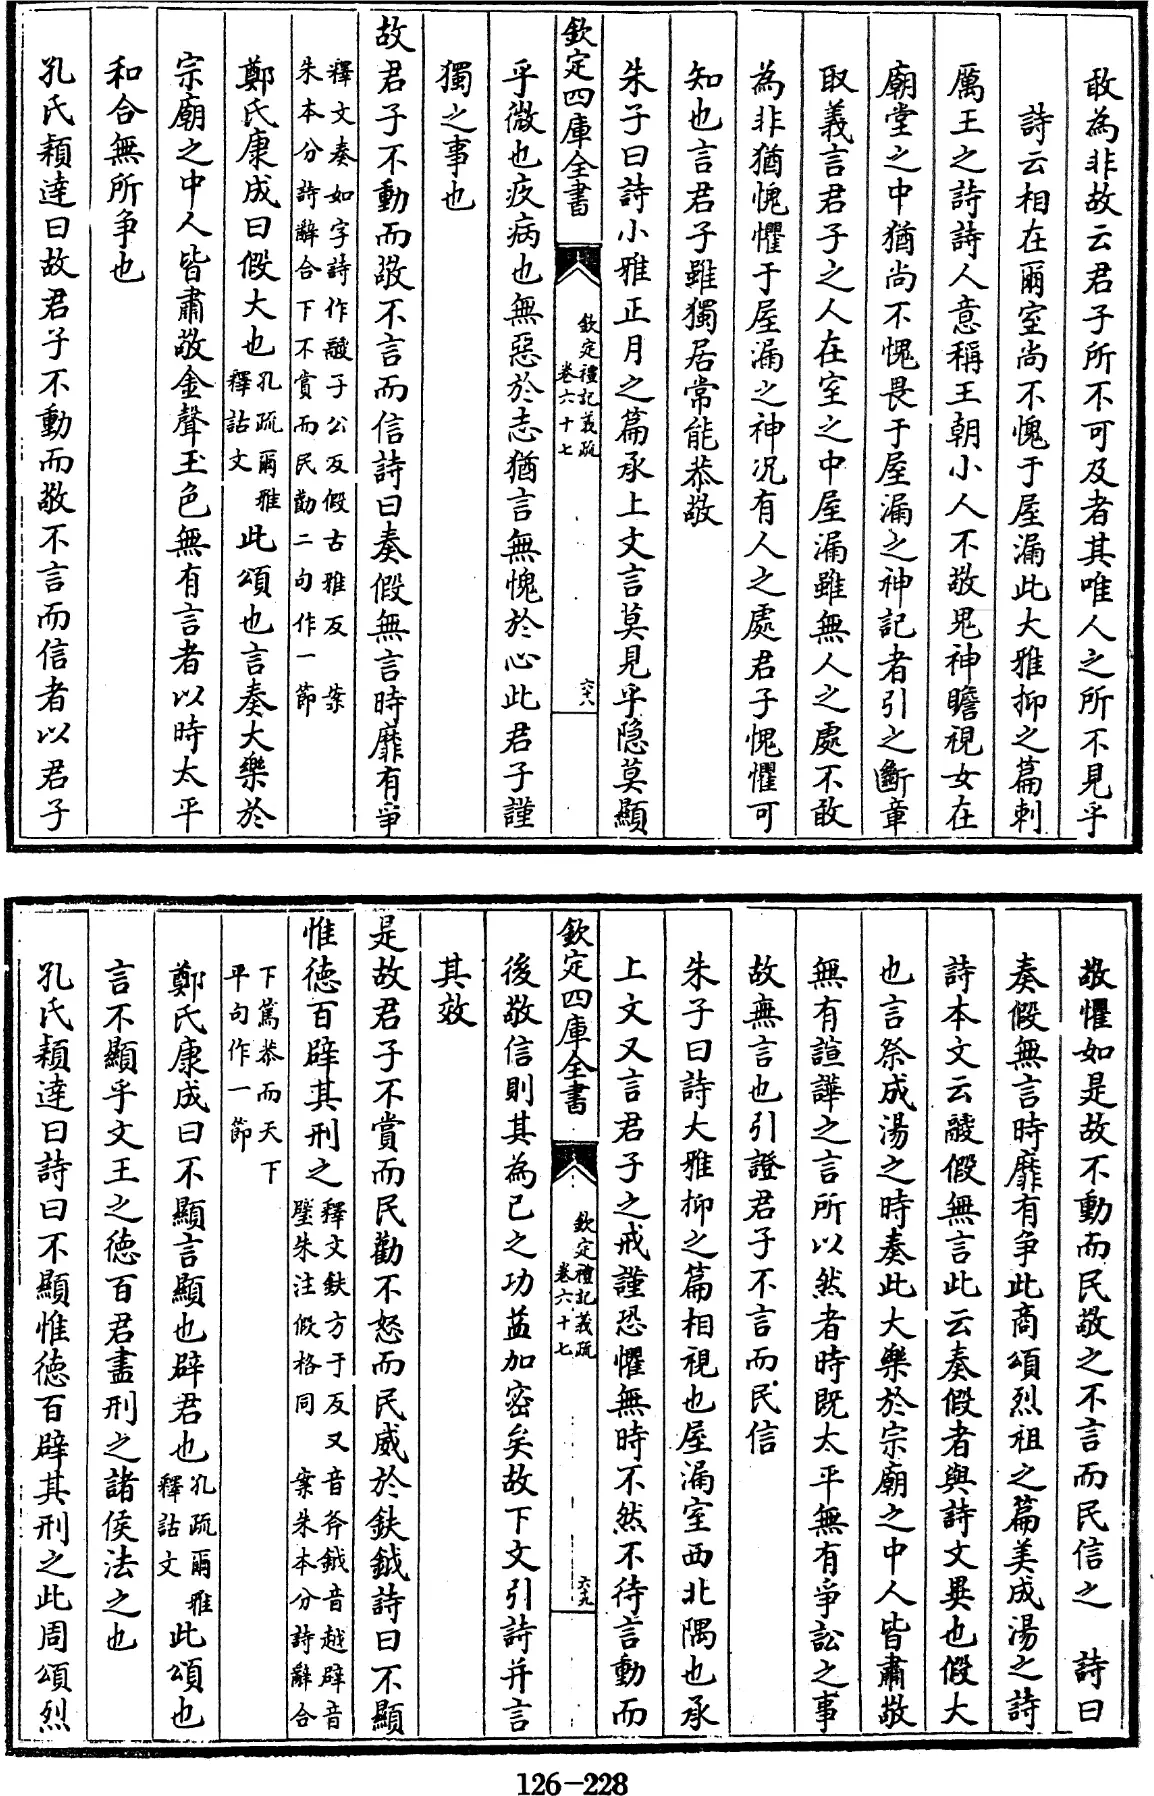 敢為非故云君子所不可及者其唯人之所不見乎
詩云相在爾室尚不愧于屋漏此大雅抑之篇刺
厲王之詩詩人意稱王朝小人不敬鬼神瞻視女在
廟堂之中猶尚不愧畏于屋漏之神記者引之斷章
取義言君子之人在室之中屋漏雖無人之處不敢
為非猶愧懼于屋漏之神況有人之處君子愧懼可
知也言君子雖獨居常能恭敬
朱子曰詩小雅正月之篇承上文言莫見乎隐莫顯
欽定四庫全書
欽定禮記義疏
卷六十七
六十八
乎微也疚病也無惡於志猶言無愧於心此君子謹
獨之事也
故君子不動而敬不言而信詩曰奏假無言時靡有爭
釋文奏如字詩作鬷子公反假古雅反 案
朱本分詩辭合下不賞而民勸二句作一節
鄭氏康成曰假大也孔疏爾雅釋詁文此頌也言奏大樂於
宗廟之中人皆肅敬金聲玉色無有言者以時太平
和合無所争也
孔氏穎達曰故君子不動而敬不言而信者以君子
敬懼如是故不動而民敬之不言而民信之 詩曰
奏假無言時靡有争此商頌烈祖之篇美成湯之詩
詩本文云鬷假無言此云奏假者與詩文異也假大
也言祭成湯之時奏此大樂於宗廟之中人皆肅敬
無有諠譁之言所以然者時既太平無有爭訟之事
故無言也引證君子不言而民信
朱子曰詩大雅抑之篇相視也屋漏室西北隅也承
上文又言君子之戒謹恐懼無時不然不待言動而
欽定四庫全書
欽定禮記義疏
卷六十七
六十九
後敬信則其為己之功益加密矣故下文引詩并言
其效
是故君子不賞而民勸不怒而民威於鈇鉞詩曰不顯
惟德百辟其刑之釋文鈇方于反又音斧鉞音越辟音璧朱注假格同 案朱本分詩辭合
下篤恭而天下
平句作一節
鄭氏康成曰不顯言顯也辟君也孔疏爾雅釋詁文此頌也
言不顯乎文王之德百君盡刑之諸侯法之也
孔氏穎達曰詩曰不顯惟德百辟其刑之此周頌烈
126-228